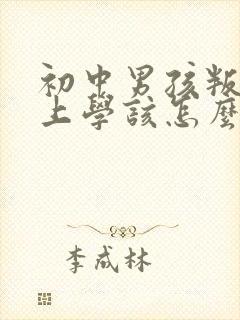 初中男孩叛
上學該怎麼
李成林